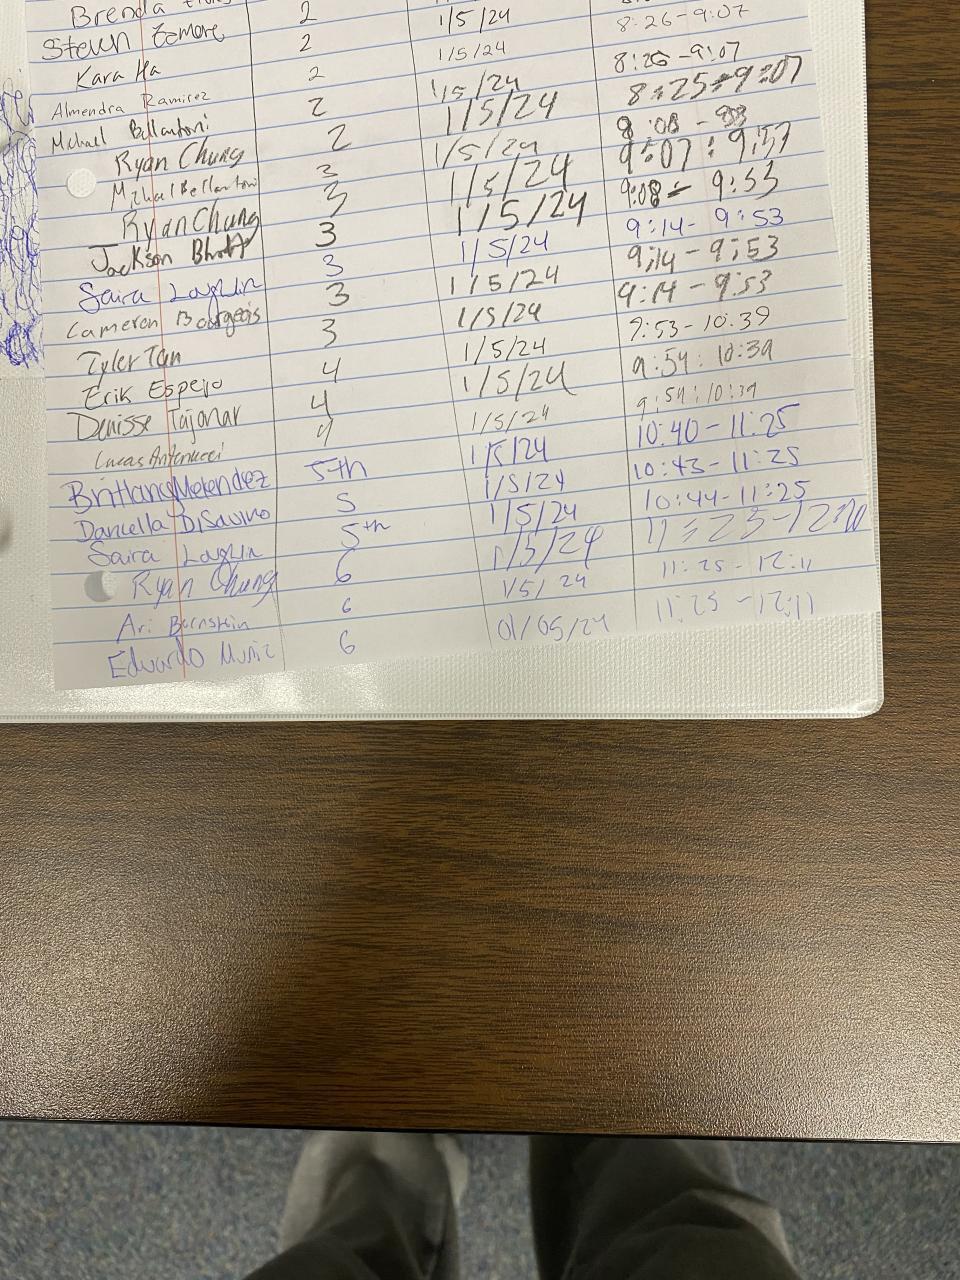 Brenda 2 1/5/24
Steven 2 1/5/24 8:26-9:07
Kara Ha 2 1/5/24 8:26-9:07
Almendra Ramirez 2 1/5/24 8:25-9:07
Michael Bellantoni 2 1/5/24 9:08 -
Ryan Chung 2 1/5/24 9:07 : 9:53
Michael Bellantoni 3 1/5/24 9:08 - 9:53
Ryan Chung 3 1/5/24 9:14- 9:53
Jackson Bhatt 3 1/5/24 9:14 - 9:53
Saira Laghin 3 1/5/24 9:14 - 9:53
Cameron Bourgeois 3 1/5/24 9:53-10:39
Tyler Tan 3 1/5/24 9:54: 10:39
Erik Espejo 4 1/5/24 9:54:10:39
Denisse Tajonar 4 1/5/24 10:40-11:25
Lucas Antonucci 4 1/5/24 10:43-11:25
Brittany Melendez 5th 1/5/24 10:44-11:25
Daniella DiSavino 5 1/5/24
Saira Laghin 5th 1/5/24 11:25 - 12:11
Ryan Chung 6 1/5/24 11:25 -12:11
Ari Bernstein 6 01/05/24
Eduardo Muniz 6